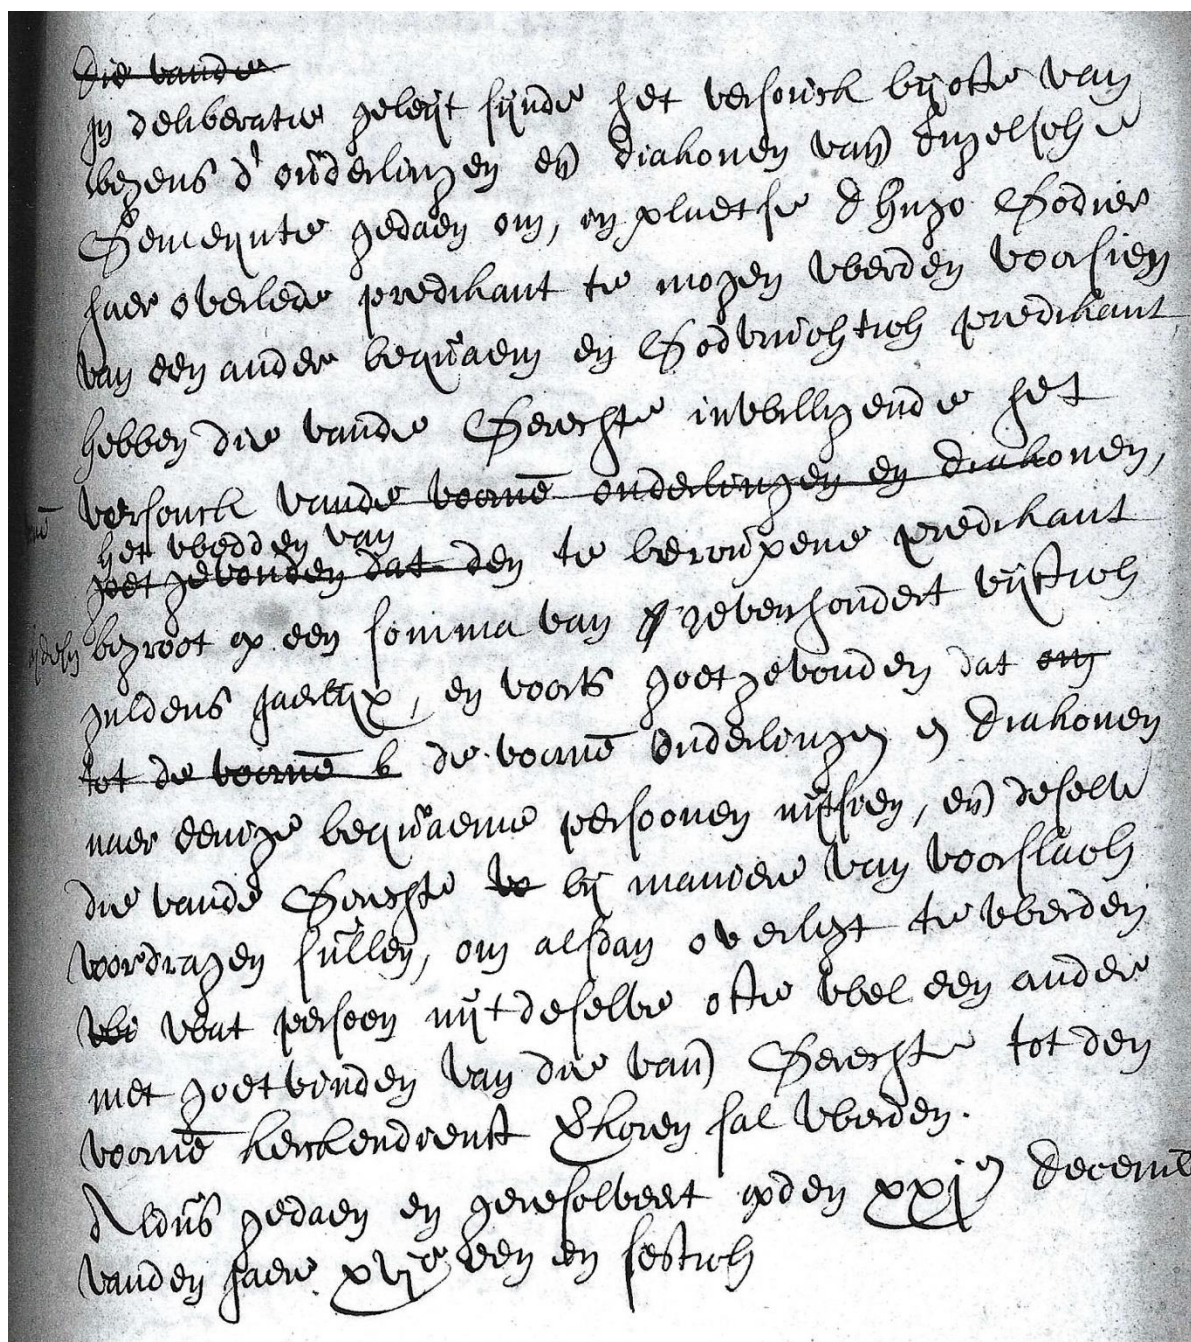 die vande
In deliberatie geleijt sijnde het versouck bij ofte van
wegens d' ouderlingen en diakonen van Engelsche
Gemeijnte gedaen om, in plaetse d Hugo Godier
haer overlede predikant te mogen werden voorsien
van een ander bequaem en Godvruchtich predikant,
hebben die vande Gerechte inwilligende het
versouck vande voorn̄ ouderlingen en diakonen,
het wedden van
goet gevonden dat den te beroupene predikant
begroot op een somma van sevenhondert vijftich
guldens jaerlijx, en voorts goet gevonden dat om
tot de voorn̄ b de voorn̄ ouderlingen en diakonen
naer eenige bequaeme persoonen uijtsien, en deselve
die vande Gerechte bij maniere van voorslach
voordragen sullen, om alsdan overlegt te werden
wat persoon uijt deselve ofte wel een ander
met goetvinden van die van Gerechte tot den
voorn̄ kerckendienst gekoren sal werden.
Aldus gedaen en geresolveert opden xxj⁠en decemb
vanden jaere xvjc een en sestich